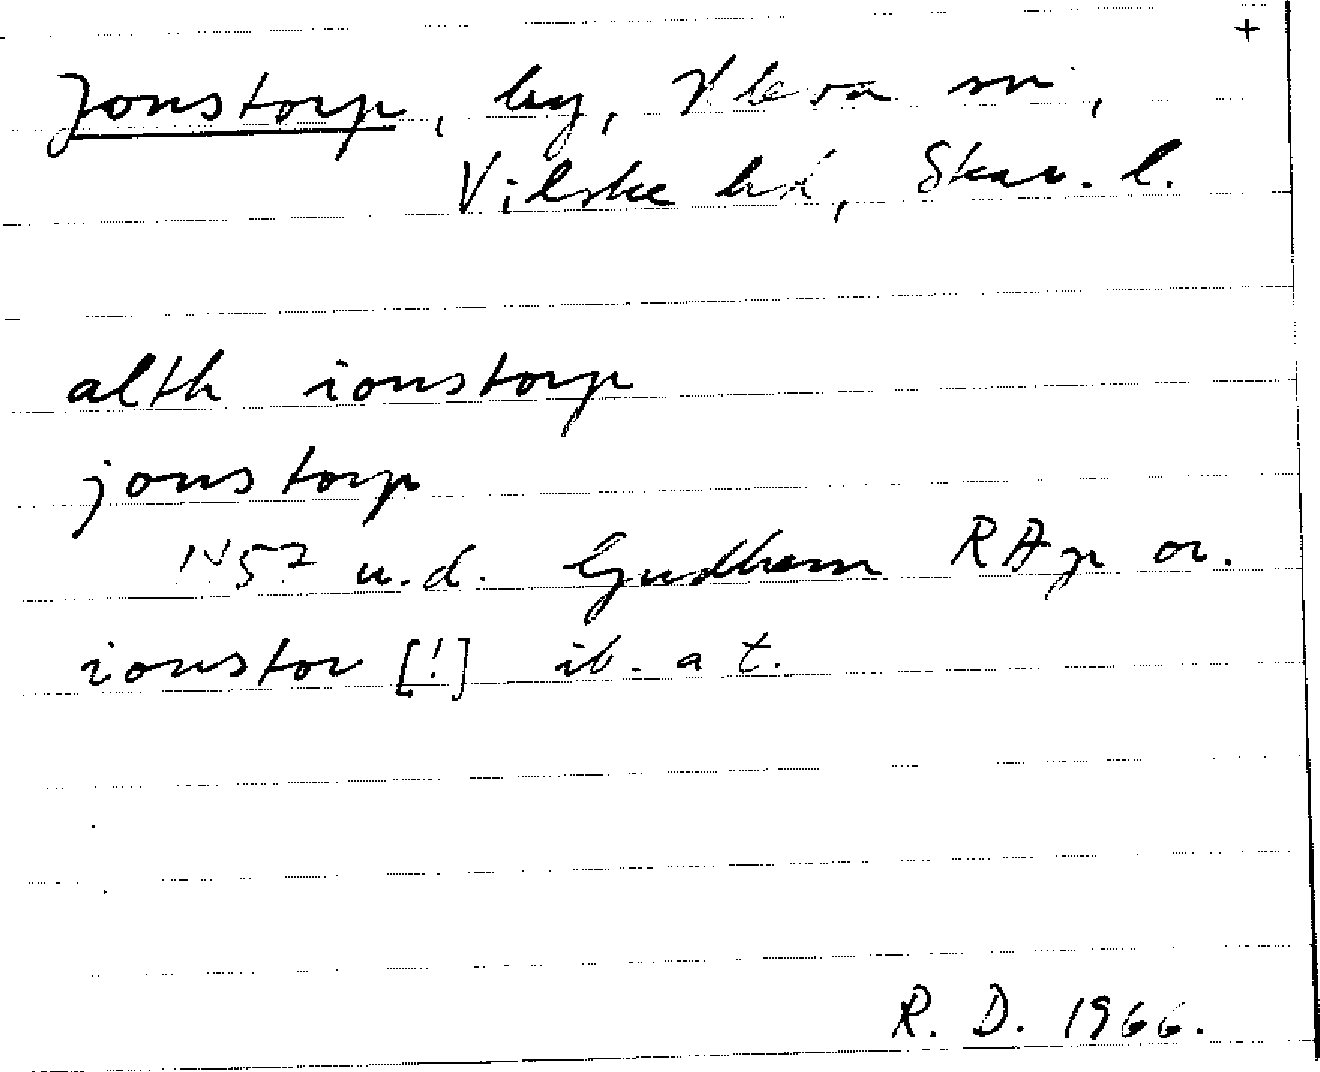 +
Jonstorp, by, Kleva sn,
Vilske hd, Skar. l.
alth ionstorp
jonstorp
1457 u.d. Gudhem RAp or.
ionstor [!] ib. a t.
R. D. 1966.